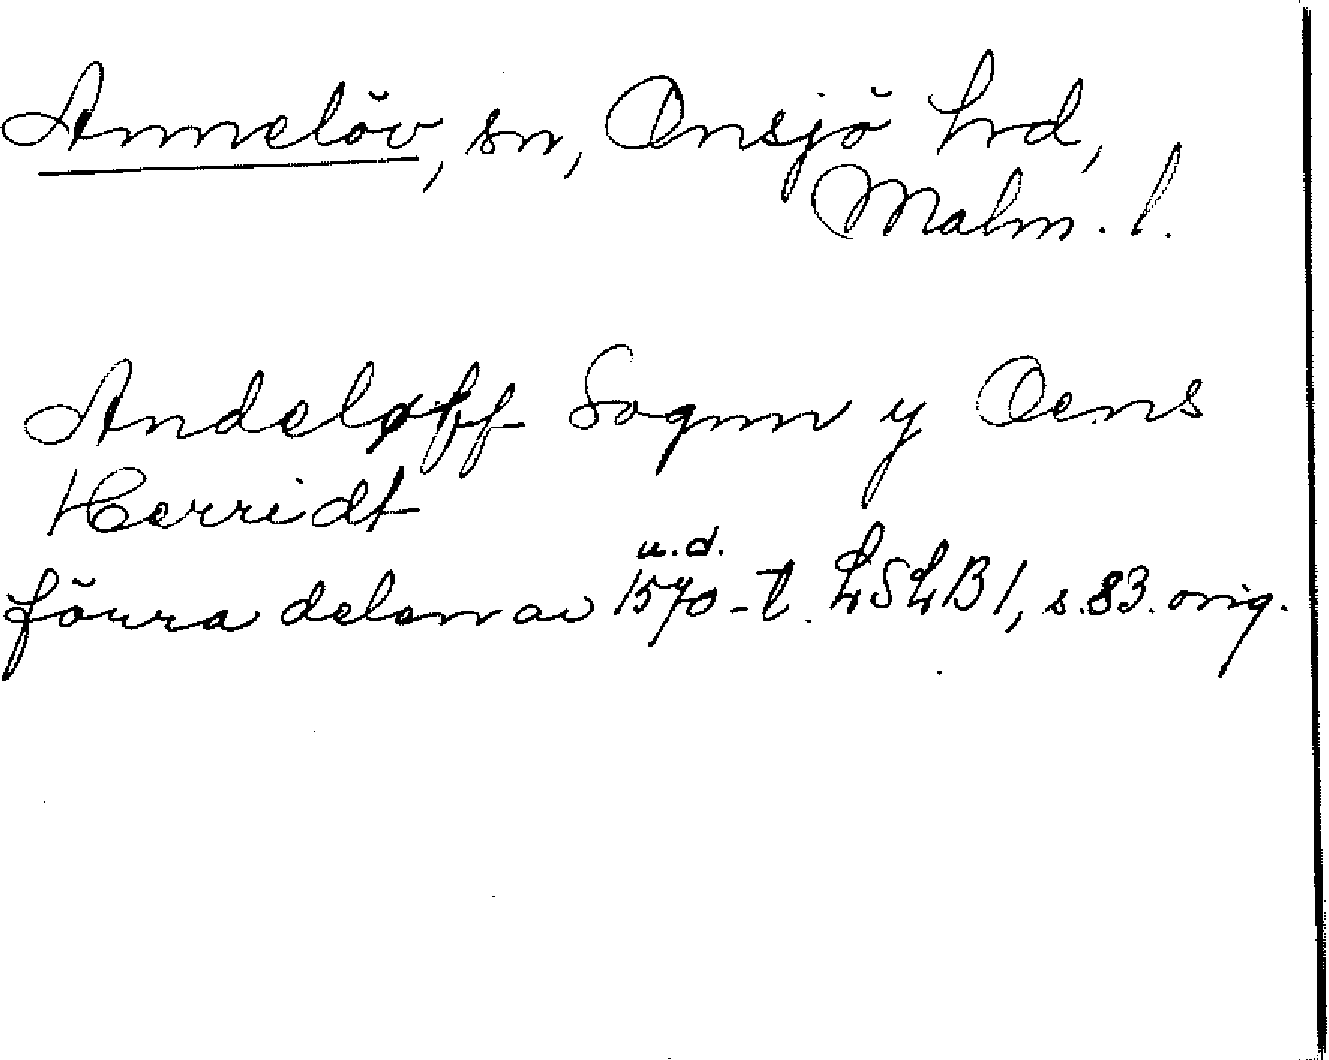 Annelöv, sn, Onsjö hrd,
Malm. l.
Andeløff Sognn y Oens
Herridt
u.d.
förra delen av 1570-t. LSLB 1, s. 83. orig.